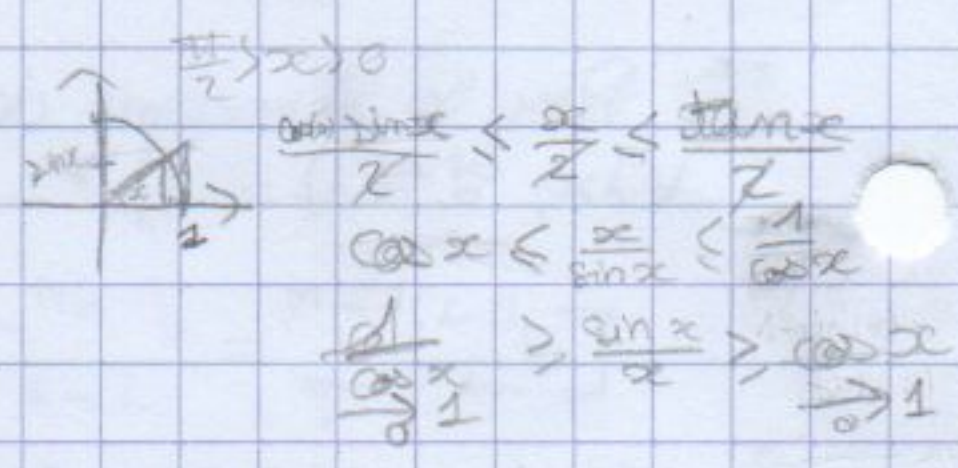 π/2 > x > 0
sin x
x
1
cos(x) sin x / 2 ≤ x / 2 ≤ tan x / 2
cos x ≤ x / sin x ≤ 1 / cos x
1 / cos x ≥ sin x / x ≥ cos x
→ 1 → 1
0 0